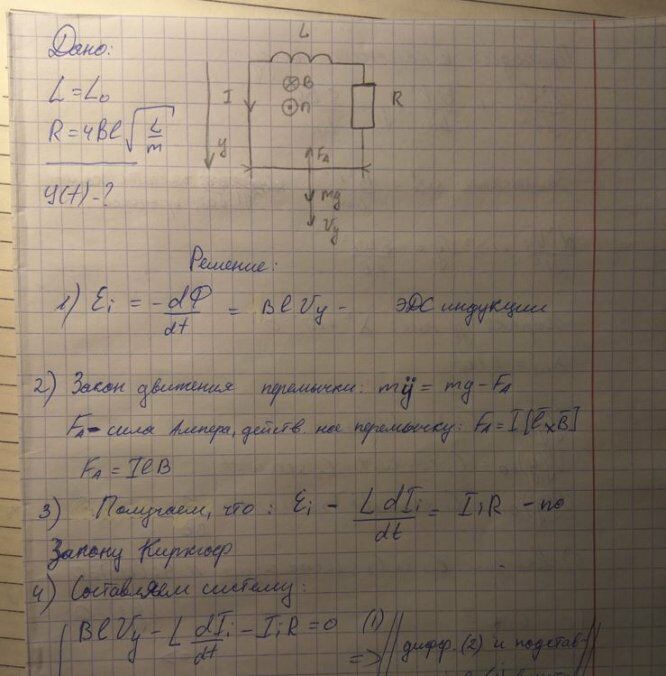 Дано:
L = L₀
R = 4Bl√(L/m)
y(t) - ?
L
I
⊗B
⊙n
R
y
F_A
mg
V_y
Решение:
1) Ɛi = -dФ/dt = BlVy - ЭДС индукции
2) Закон движения перемычки: mÿ = mg - F_A
F_A - сила Ампера, действ. на перемычку: F_A = I[l̄ × B̄]
F_A = IlB
3) Получаем, что: Ɛi - L dIi/dt = IiR - по
Закону Кирхгоф
4) Составляем систему:
BlVy - L dIi/dt - IiR = 0 (1)
=> дифф. (2) и подстав-